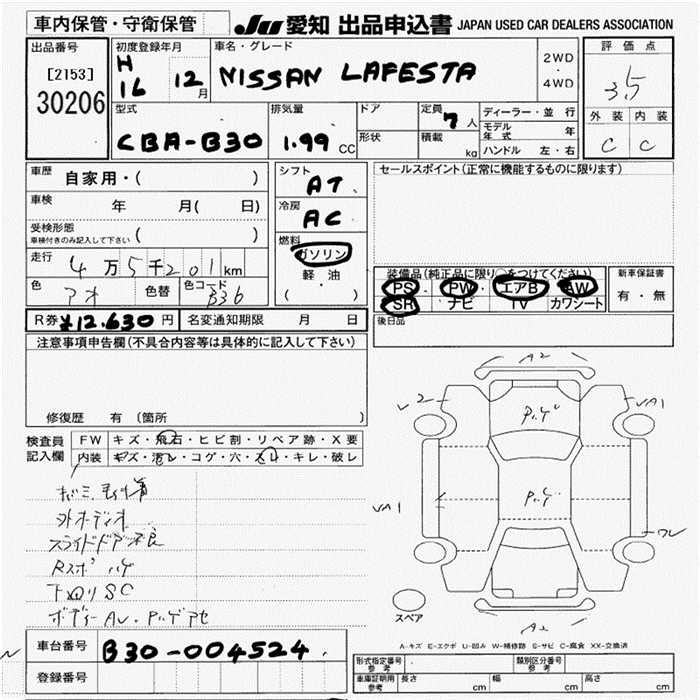 車内保管・守衛保管
JU 愛知 出品申込書 JAPAN USED CAR DEALERS ASSOCIATION
出品番号
[2153]
30206
初度登録年月
H
16 12月
車名・グレード
NISSAN LAFESTA
2WD
・
4WD
評価点
3.5
外装 内装
C C
型式
CBA-B30
排気量
1.99 CC
ドア
形状
定員
7人
積載
kg
ディーラー・並行
モデル年式 年
ハンドル 左・右
車歴
自家用・( )
車検
年 月(日)
受検形態
車検付きのみ記入して下さい ( )
走行
4万5千201km
色
アオ
色替
色コード
B36
R券 ¥12.630円
名変通知期限 月 日
シフト
AT
冷房
AC
燃料
ガソリン
軽・油
( )
セールスポイント(正常に機能するものに限ります)
装備品(純正品に限り○をつけてください)
PS PW エアB AW
SR ナビ TV カワシート
新車保証書
有・無
後日品
注意事項申告欄(不具合内容等は具体的に記入して下さい)
修復歴 有(箇所 )
検査員
記入欄
FW キズ・飛石・ヒビ割・リペア跡・X要
内装 キズ・汚レ・コゲ・穴・スレ・キレ・破レ
外オーディオ
スライドドア不良
Rスポ ハゲ
下回りSC
車台番号
B30-004524
登録番号
A2
U2
VA1
VA1
ワレ
A2
スペア
A-キズ E-エクボ U-凹み W-補修跡 S-サビ C-腐食 XX-交換済
形式指定番号
参考
類別区分番号
参考
車庫証明用
参考
長さ cm
幅 cm
高さ cm